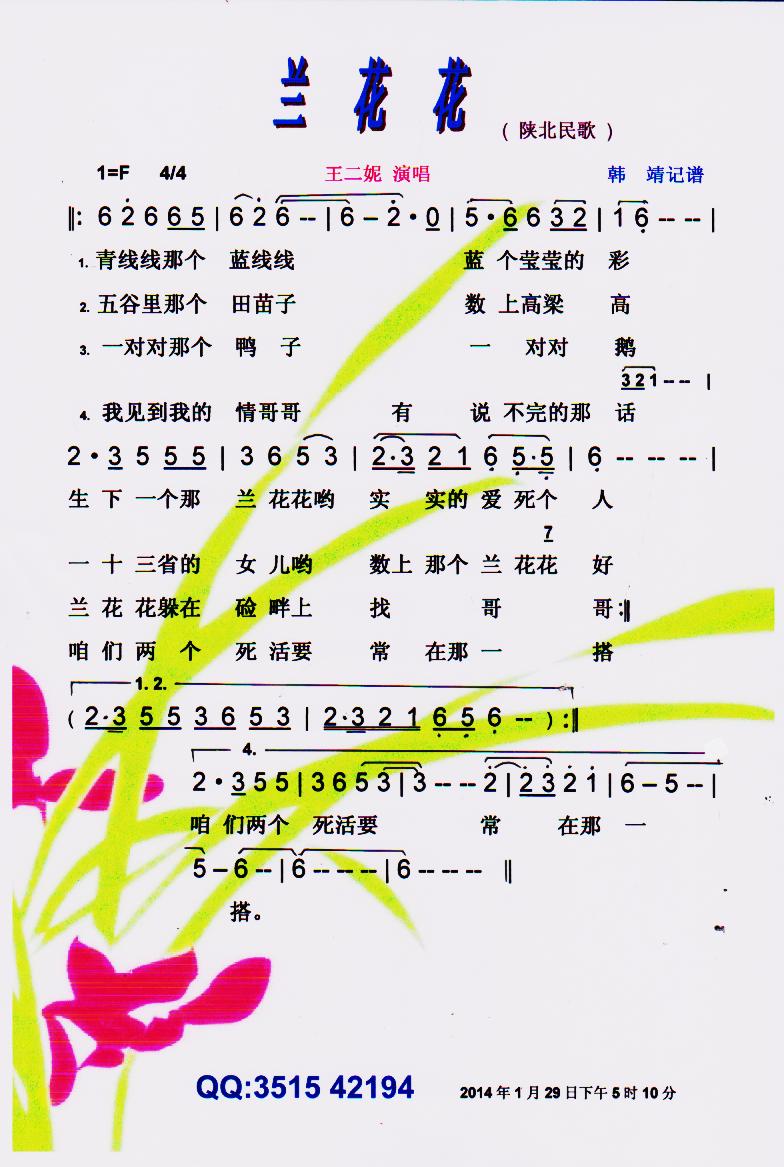 兰花花
（陕北民歌）
1=F 4/4 王二妮 演唱 韩 靖记谱
‖: 6 2 6 6 5 | 6 2 6 -- | 6 – 2 · 0 | 5 · 6 6 3 2 | 1 6 -- -- |
1. 青线线那个 蓝线线 蓝 个莹莹的 彩
2. 五谷里那个 田苗子 数 上高梁 高
3. 一对对那个 鸭 子 一 对对 鹅
3 2 1 -- -- |
4. 我见到我的 情哥哥 有 说 不完的那 话
2 · 3 5 5 5 5 | 3 6 5 3 | 2 · 3 2 1 6 5 · 5 | 6 -- -- -- |
生 下 一个那 兰 花花哟 实 实的 爱 死个 人
7
一 十 三省的 女 儿哟 数上 那个 兰 花花 好
兰 花 花躲在 硷 畔上 找 哥 哥 :‖
咱 们 两 个 死 活要 常 在那 一 搭
1. 2.
( 2 · 3 5 5 3 6 5 3 | 2 · 3 2 1 6 5 6 -- ) :‖
4.
2 · 3 5 5 | 3 6 5 3 | 3 -- -- 2 | 2 3 2 1 | 6 – 5 -- |
咱 们两个 死活要 常 在那 一
5 – 6 -- | 6 -- -- -- | 6 -- -- -- ‖
搭。
QQ:3515 42194 2014 年 1 月 29 日下午 5 时 10 分